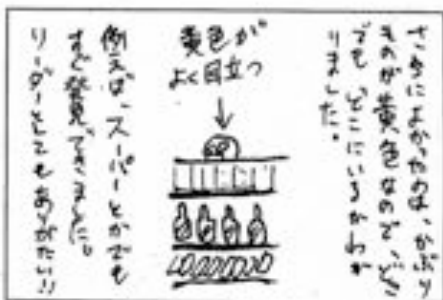 さらによかったのは、かぶり
ものが黄色なので、どこ
でも、どこにいるかわか
りました。
黄色が
よく目立つ
例えば、スーパーとかでも
すぐ発見できました。
リーダーとしてもありがたい!!